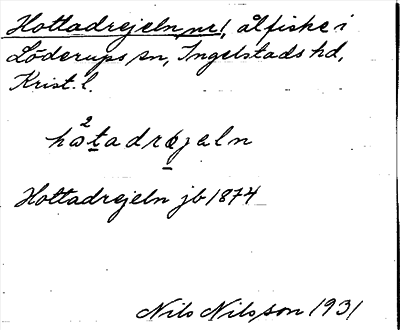 Hottadrejeln, nr 1, ålfiske i
Löderups sn, Ingelstads hd,
Krist. l.
2
hotadrejeln
Hottadrejeln jb 1874
Nils Nilsson 1931